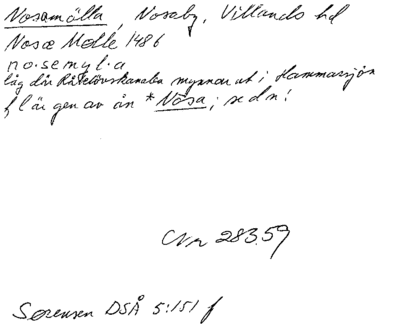 Nosamölla, Nosaby, Villands hd
Nosæ Mølle 1486
no.semyl.a
låg där Råbelövskanalen mynnar ut i Hammarsjön
f l är gen av ån *Nosa; se d n!
Nr 28359
Sørensen DSÅ 5:151 f